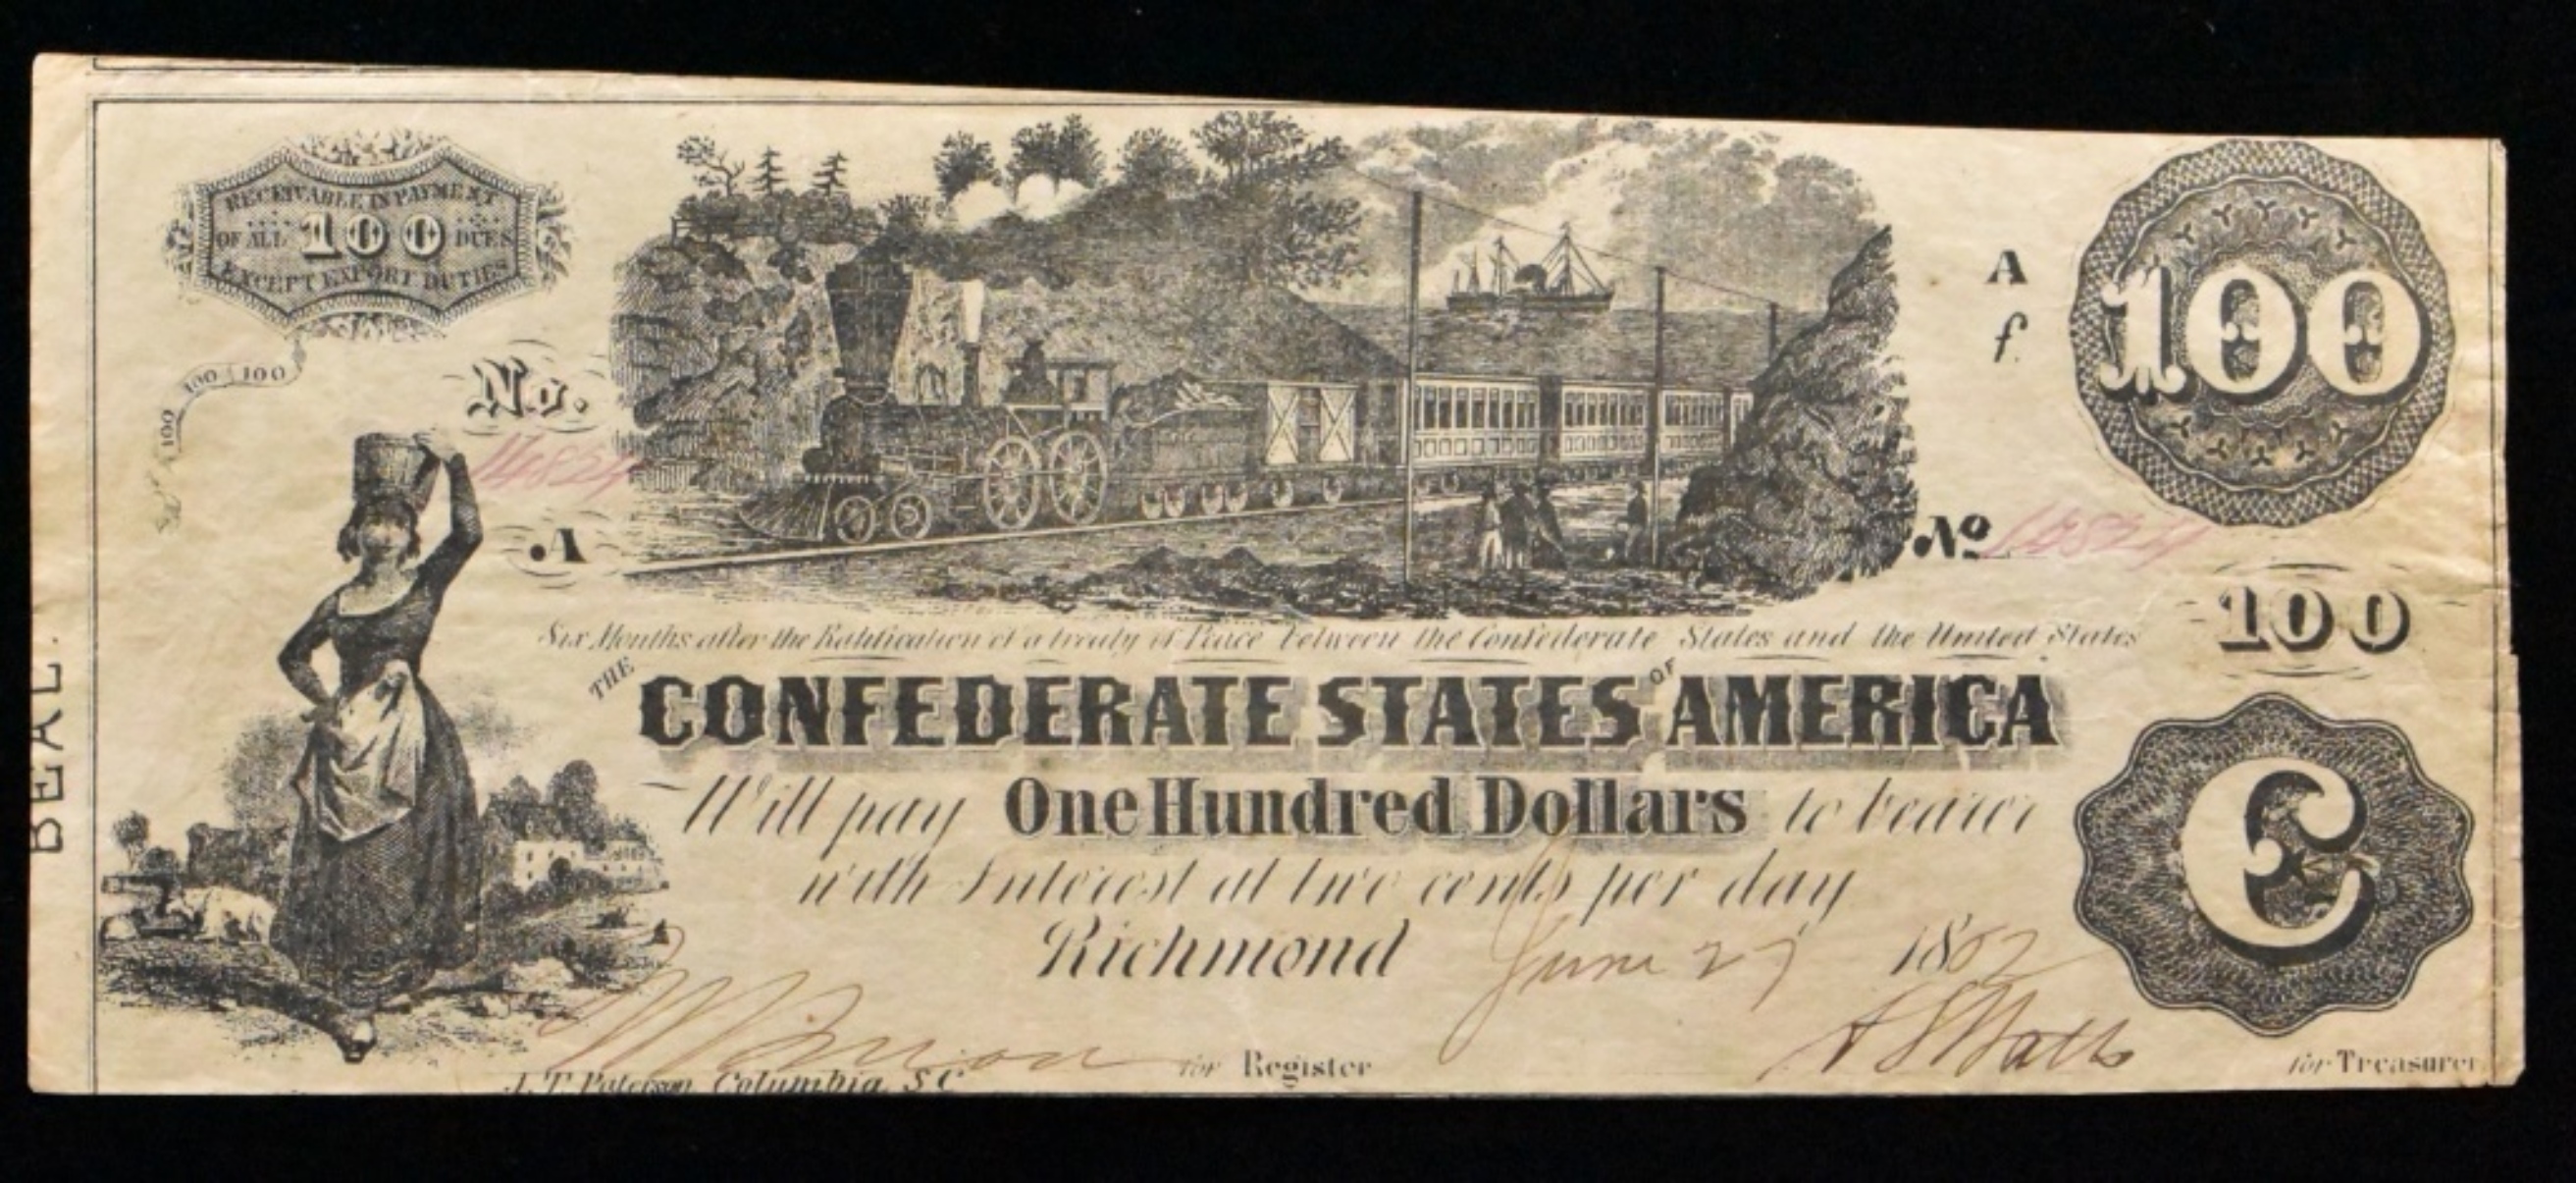 RECEIVABLE IN PAYMENT
OF ALL 100 DUES
EXCEPT EXPORT DUTIES
100 100 100
No.
16824
A
A
f.
100
No 16824
100
Six Months after the Ratification of a treaty of Peace between the Confederate States and the United States
THE CONFEDERATE STATES OF AMERICA
Will pay One Hundred Dollars to bearer
with Interest at two cents per day
Richmond June 27 1862
C
for Register
for Treasurer
J. T. Paterson, Columbia, S C
BEAL.